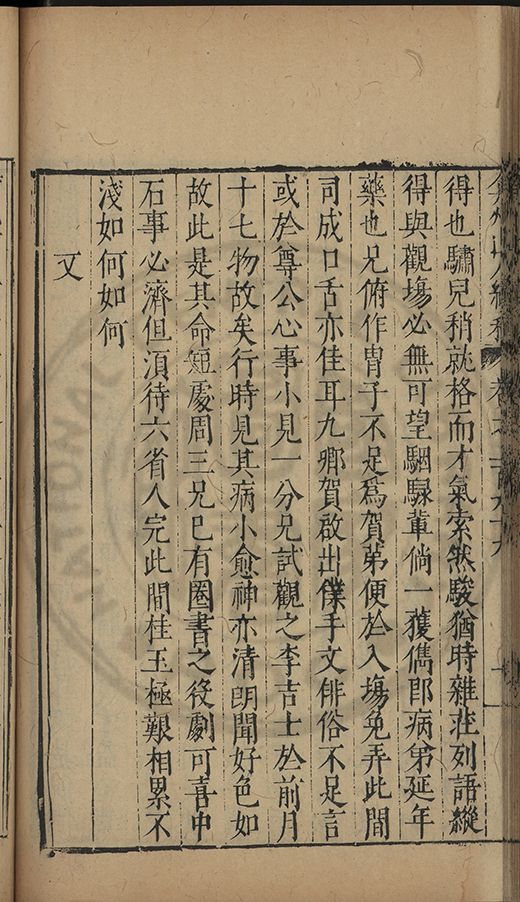 弇州山人續稿 卷之一百九十六 十
得也驌兒稍就格而才氣索然駿猶時雜莊列語縱
得與觀塲必無可望駰騄輩倘一獲儁卽病第延年
藥也兄俯作胄子不足爲賀第便於入塲免弄此間
司成口舌亦佳耳九鄉賀啟出僕手文俳俗不足言
或於尊公心事小見一分兄試觀之李吉士於前月
十七物故矣行時見其病小愈神亦清朗聞好色如
故此是其命短處周三兄已有圈書之役劇可喜中
石事必濟但湏待六省人完此間桂玉極艱相累不
淺如何如何
又